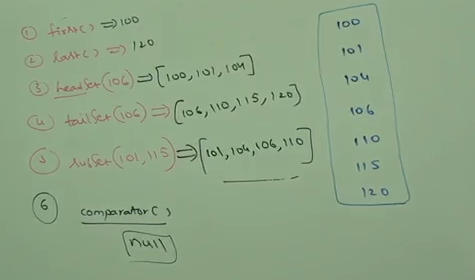 ① first() ⇒ 100
② last() ⇒ 120
③ headSet(106) ⇒ [100, 101, 104]
④ tailSet(106) ⇒ [106, 110, 115, 120]
⑤ subSet(101, 115) ⇒ [101, 104, 106, 110]
⑥ comparator()
null
100
101
104
106
110
115
120